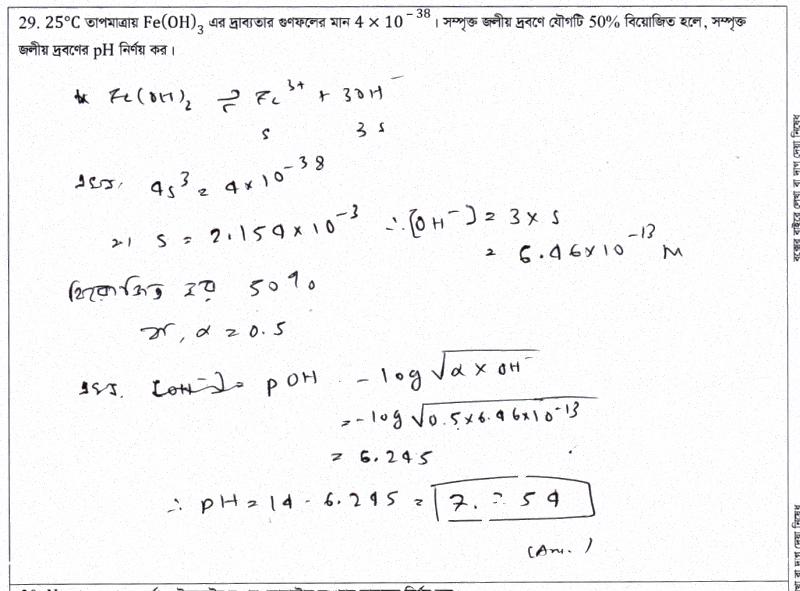 29. 25°C তাপমাত্রায় Fe(OH)₃ এর দ্রাব্যতার গুণফলের মান 4 × 10⁻³⁸। সম্পৃক্ত জলীয় দ্রবণে যৌগটি 50% বিয়োজিত হলে, সম্পৃক্ত
জলীয় দ্রবণের pH নির্ণয় কর।
Fe(OH)₂ ⇌ Fe³⁺ + 3OH⁻
s 3s
4s³ = 4×10⁻³⁸
s = 2.154×10⁻³ ∴ [OH⁻] = 3 × s
= 6.46×10⁻¹³ M
বিয়োজিত হয় 50%
α = 0.5
pOH - log √α × OH⁻
= - log √0.5×6.46×10⁻¹³
= 6.245
∴ pH = 14 - 6.245 = 7. 54
(Ans.)